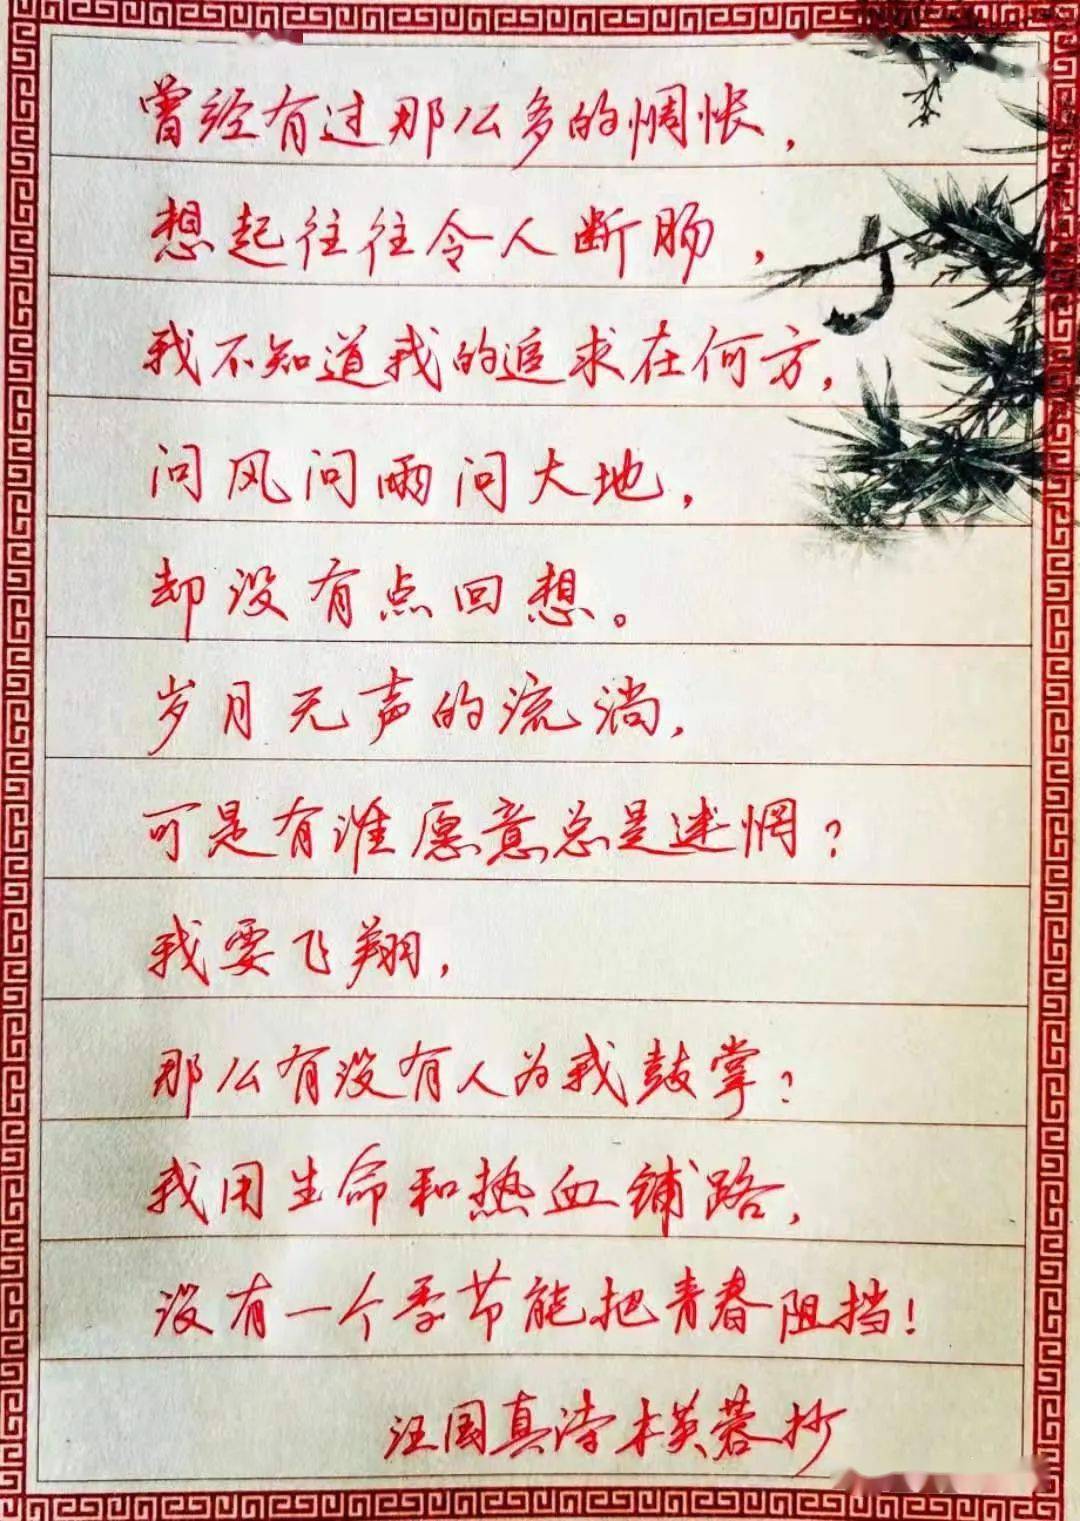 曾经有过那么多的惆怅，
想起往往令人断肠，
我不知道我的追求在何方，
问风问雨问大地，
却没有点回想。
岁月无声的流淌，
可是有谁愿意总是迷惘？
我要飞翔，
那么有没有人为我鼓掌？
我用生命和热血铺路，
没有一个季节能把青春阻挡！
汪国真诗木芙蓉抄